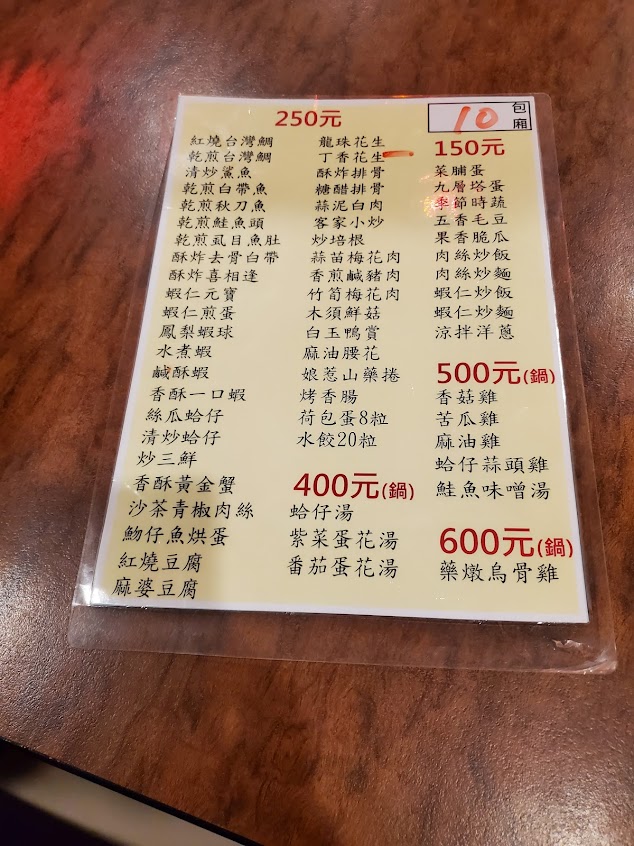 10
包廂
250元
紅燒台灣鯛
乾煎台灣鯛
清炒鯊魚
乾煎白帶魚
乾煎秋刀魚
乾煎鮭魚頭
乾煎虱目魚肚
酥炸去骨白帶
酥炸喜相逢
蝦仁元寶
蝦仁煎蛋
鳳梨蝦球
水煮蝦
鹹酥蝦
香酥一口蝦
絲瓜蛤仔
清炒蛤仔
炒三鮮
香酥黃金蟹
沙茶青椒肉絲
魩仔魚烘蛋
紅燒豆腐
麻婆豆腐
龍珠花生
丁香花生
酥炸排骨
糖醋排骨
蒜泥白肉
客家小炒
炒培根
蒜苗梅花肉
香煎鹹豬肉
竹筍梅花肉
木須鮮菇
白玉鴨賞
麻油腰花
娘惹山藥捲
烤香腸
荷包蛋8粒
水餃20粒
400元(鍋)
蛤仔湯
紫菜蛋花湯
番茄蛋花湯
150元
菜脯蛋
九層塔蛋
季節時蔬
五香毛豆
果香脆瓜
肉絲炒飯
肉絲炒麵
蝦仁炒飯
蝦仁炒麵
涼拌洋蔥
500元(鍋)
香菇雞
苦瓜雞
麻油雞
蛤仔蒜頭雞
鮭魚味噌湯
600元(鍋)
藥燉烏骨雞